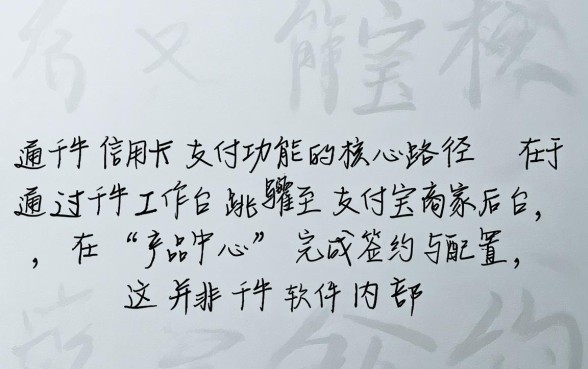 通千牛信用卡支付功能的核心路径 在于
通过千牛工作台跳至支付宝商家后台，
，在“产品中心”完成签约与配置，
这并非千牛软件内部